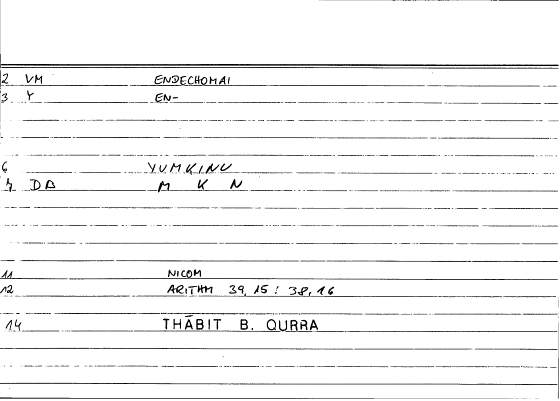 2 VM ENDECHOMAI
3 Y EN-
6 YUMKINU
4 DB M K N
11 NICOM
12 ARITHM 39,15 : 38,16
14 THĀBIT B. QURRA